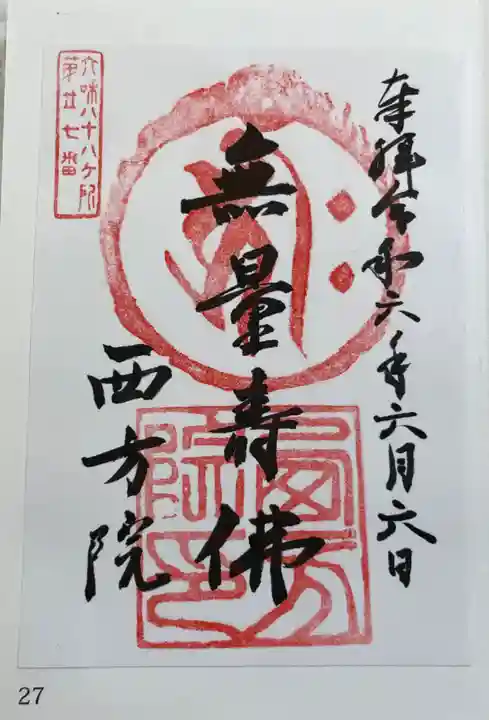 奉拝 令和六年六月六日
無量寿佛
西方院
八十八ヶ所
第廿七番
西方院印
27